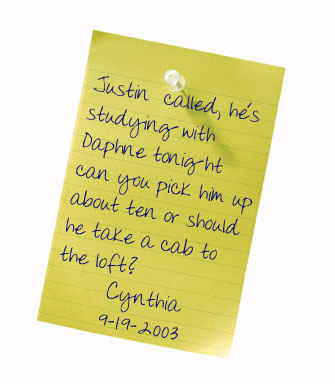 Justin called, he's
studying with
Daphne tonight
can you pick him up
about ten or should
he take a cab to
the loft?
Cynthia
9-19-2003